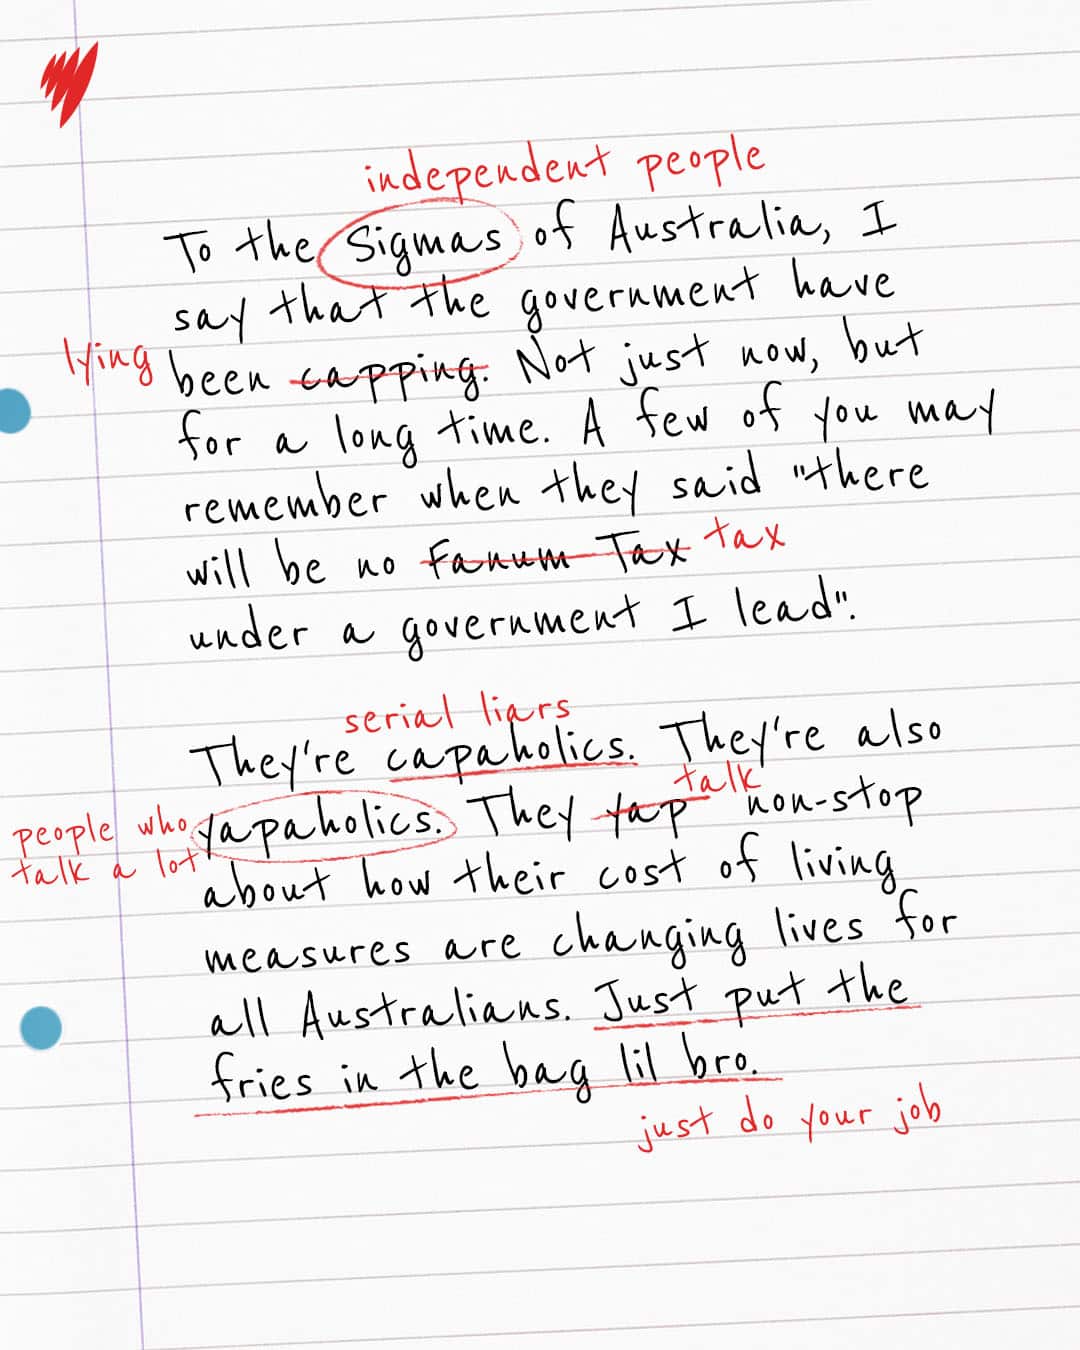 independent people
To the Sigmas of Australia, I
say that the government have
lying been capping. Not just now, but
for a long time. A few of you may
remember when they said "there
will be no Fanum Tax tax
under a government I lead".
serial liars
They're capaholics. They're also
talk
people who yapaholics. They yap non-stop
talk a lot about how their cost of living
measures are changing lives for
all Australians. Just put the
fries in the bag lil bro.
just do your job